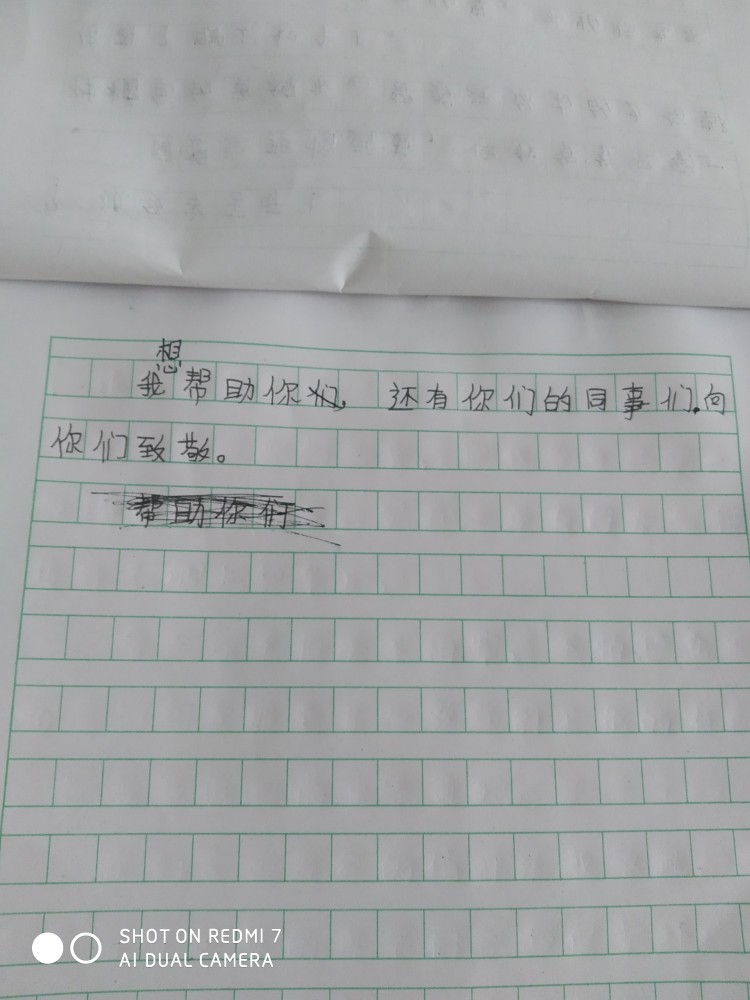 我想帮助你们，还有你们的同事们.向
你们致敬。
帮助你们
SHOT ON REDMI 7
AI DUAL CAMERA